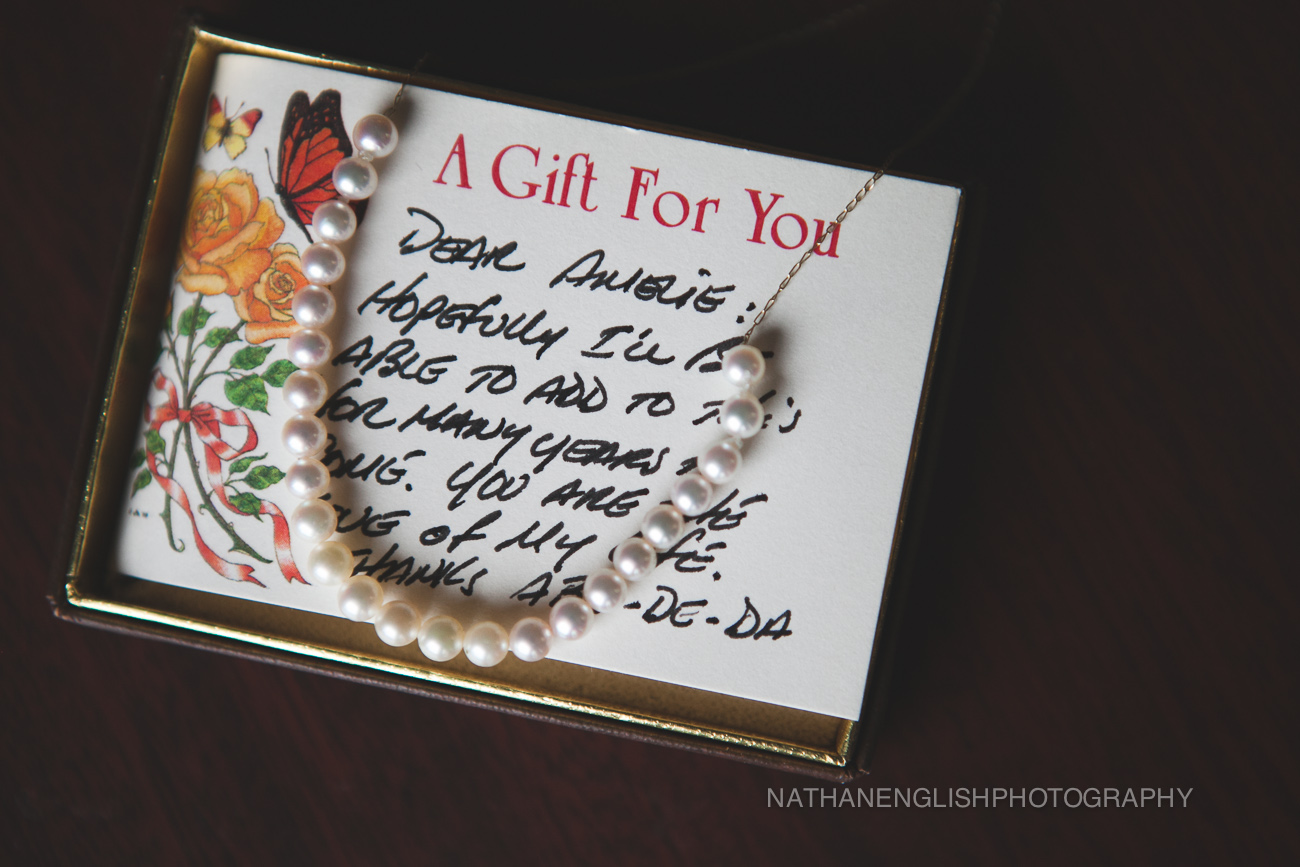 A Gift For You
DEAR AMELIE:
HOPEFULLY I'LL BE
ABLE TO ADD TO THIS
FOR MANY YEARS
YOU ARE THE
OF MY LIFE.
THANKS -DE-DA
JAN
NATHANENGLISHPHOTOGRAPHY